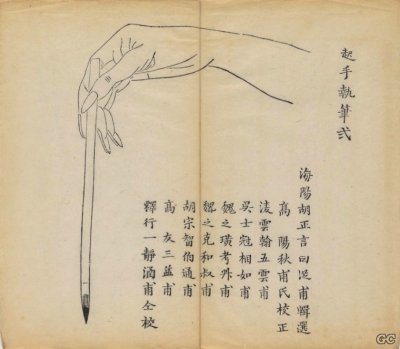 起手執筆式
海陽胡正言曰從甫輯選
高陽秋甫氏校正
凌雲翰五雲甫
吳士冠相如甫
魏之璜考叔甫
魏之克和叔甫
胡宗智伯通甫
高友三益甫
釋行一靜涵甫仝校
GC